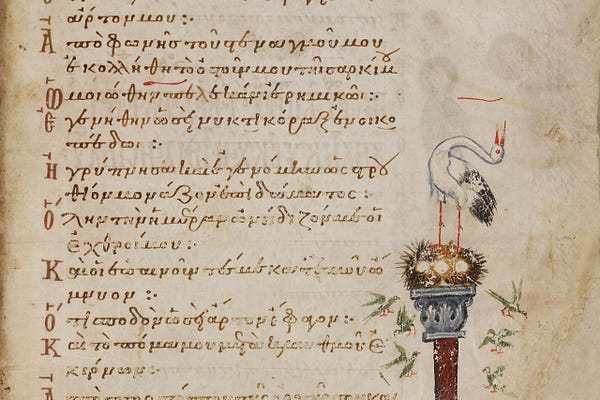 ἄρτον μου :·
Ἀπὸ φωνῆς τοῦ στεναγμοῦ μου
ἐκολλήθη τὸ ὀστοῦν μου τῆι σαρκί μου
Ὡμοιώθην πελεκάνι ἐρημικῶι :·
Ἐγενήθην ὡσεὶ νυκτικόραξ ἐν οἰκο
πέδωι :·
Ἠγρύπνησα καὶ ἐγενόμην ὡς στρου
θίον μονάζον ἐπὶ δώματος :·
Ὅλην τὴν ἡμέραν ὠνείδιζόν με οἱ
ἐχθροί μου :·
Καὶ οἱ ἐπαινοῦντές με κατ' ἐμοῦ ὤ
μνυον :·
Ὅτι σποδὸν ὡσεὶ ἄρτον ἔφαγον :·
Καὶ τὸ πόμα μου μετὰ κλαυθμοῦ ἐ
κέρνων :·